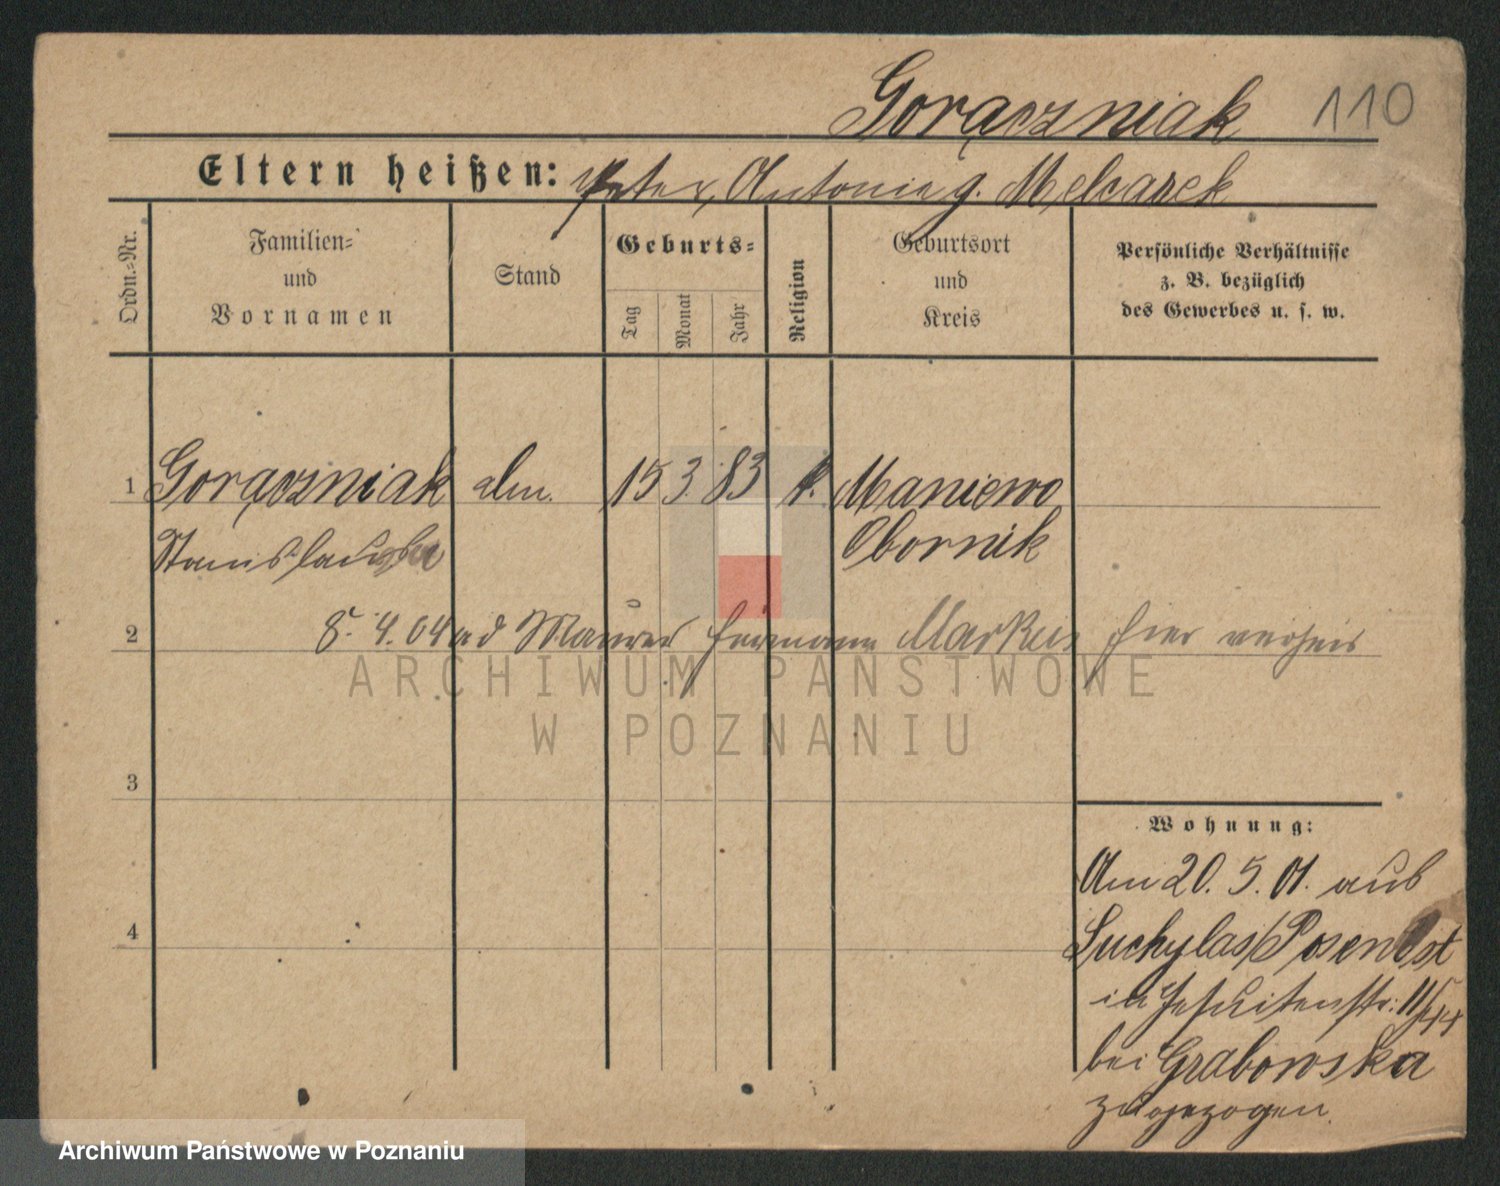 Gorączniak 110
Eltern heißen: Peter, Antonie g. Melcarek
Ordn.-Nr.
Familien-
und
Vornamen
Stand
Geburts-
Tag
Monat
Jahr
Religion
Geburtsort
und
Kreis
Persönliche Verhältnisse
z. B. bezüglich
des Gewerbes u. s. w.
1 Gorączniak 15 3. 83 k. Maniewo
Stanislaus Obornik
2 8. 4. 04 Maurer Hermann Markus hier
ARCHIWUM PAŃSTWOWE
W POZNANIU
3
4
Wohnung:
Am 20. 5. 01. aus
Suchylas/Posen Ost
in Jesuitenstr: 11
bei Grabowska
zugezogen.
Archiwum Państwowe w Poznaniu